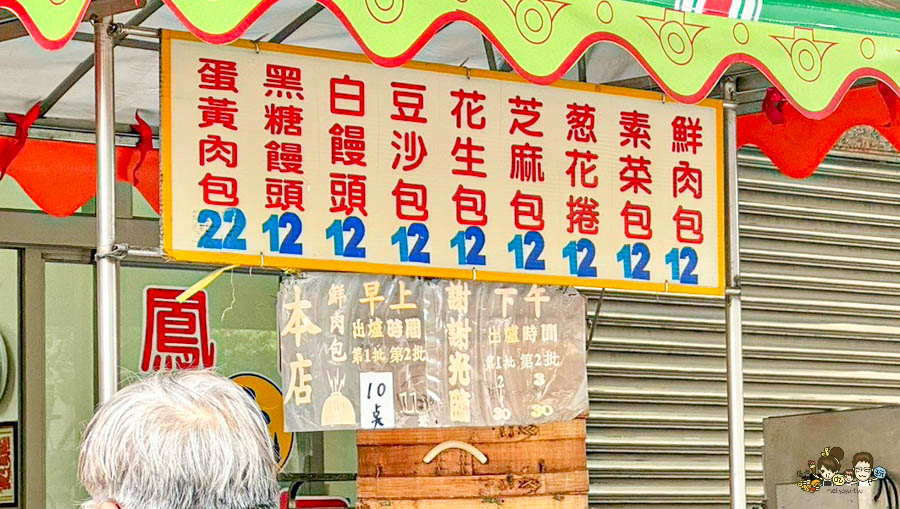 鮮肉包 12
素菜包 12
葱花捲 12
芝麻包 12
花生包 12
豆沙包 12
白饅頭 12
黑糖饅頭 12
蛋黃肉包 22
本店
鮮肉包
早上
出爐時間
第1批 第2批
10點 11
謝謝光臨
下午
出爐時間
第1批 第2批
2 3
30 30
鳳